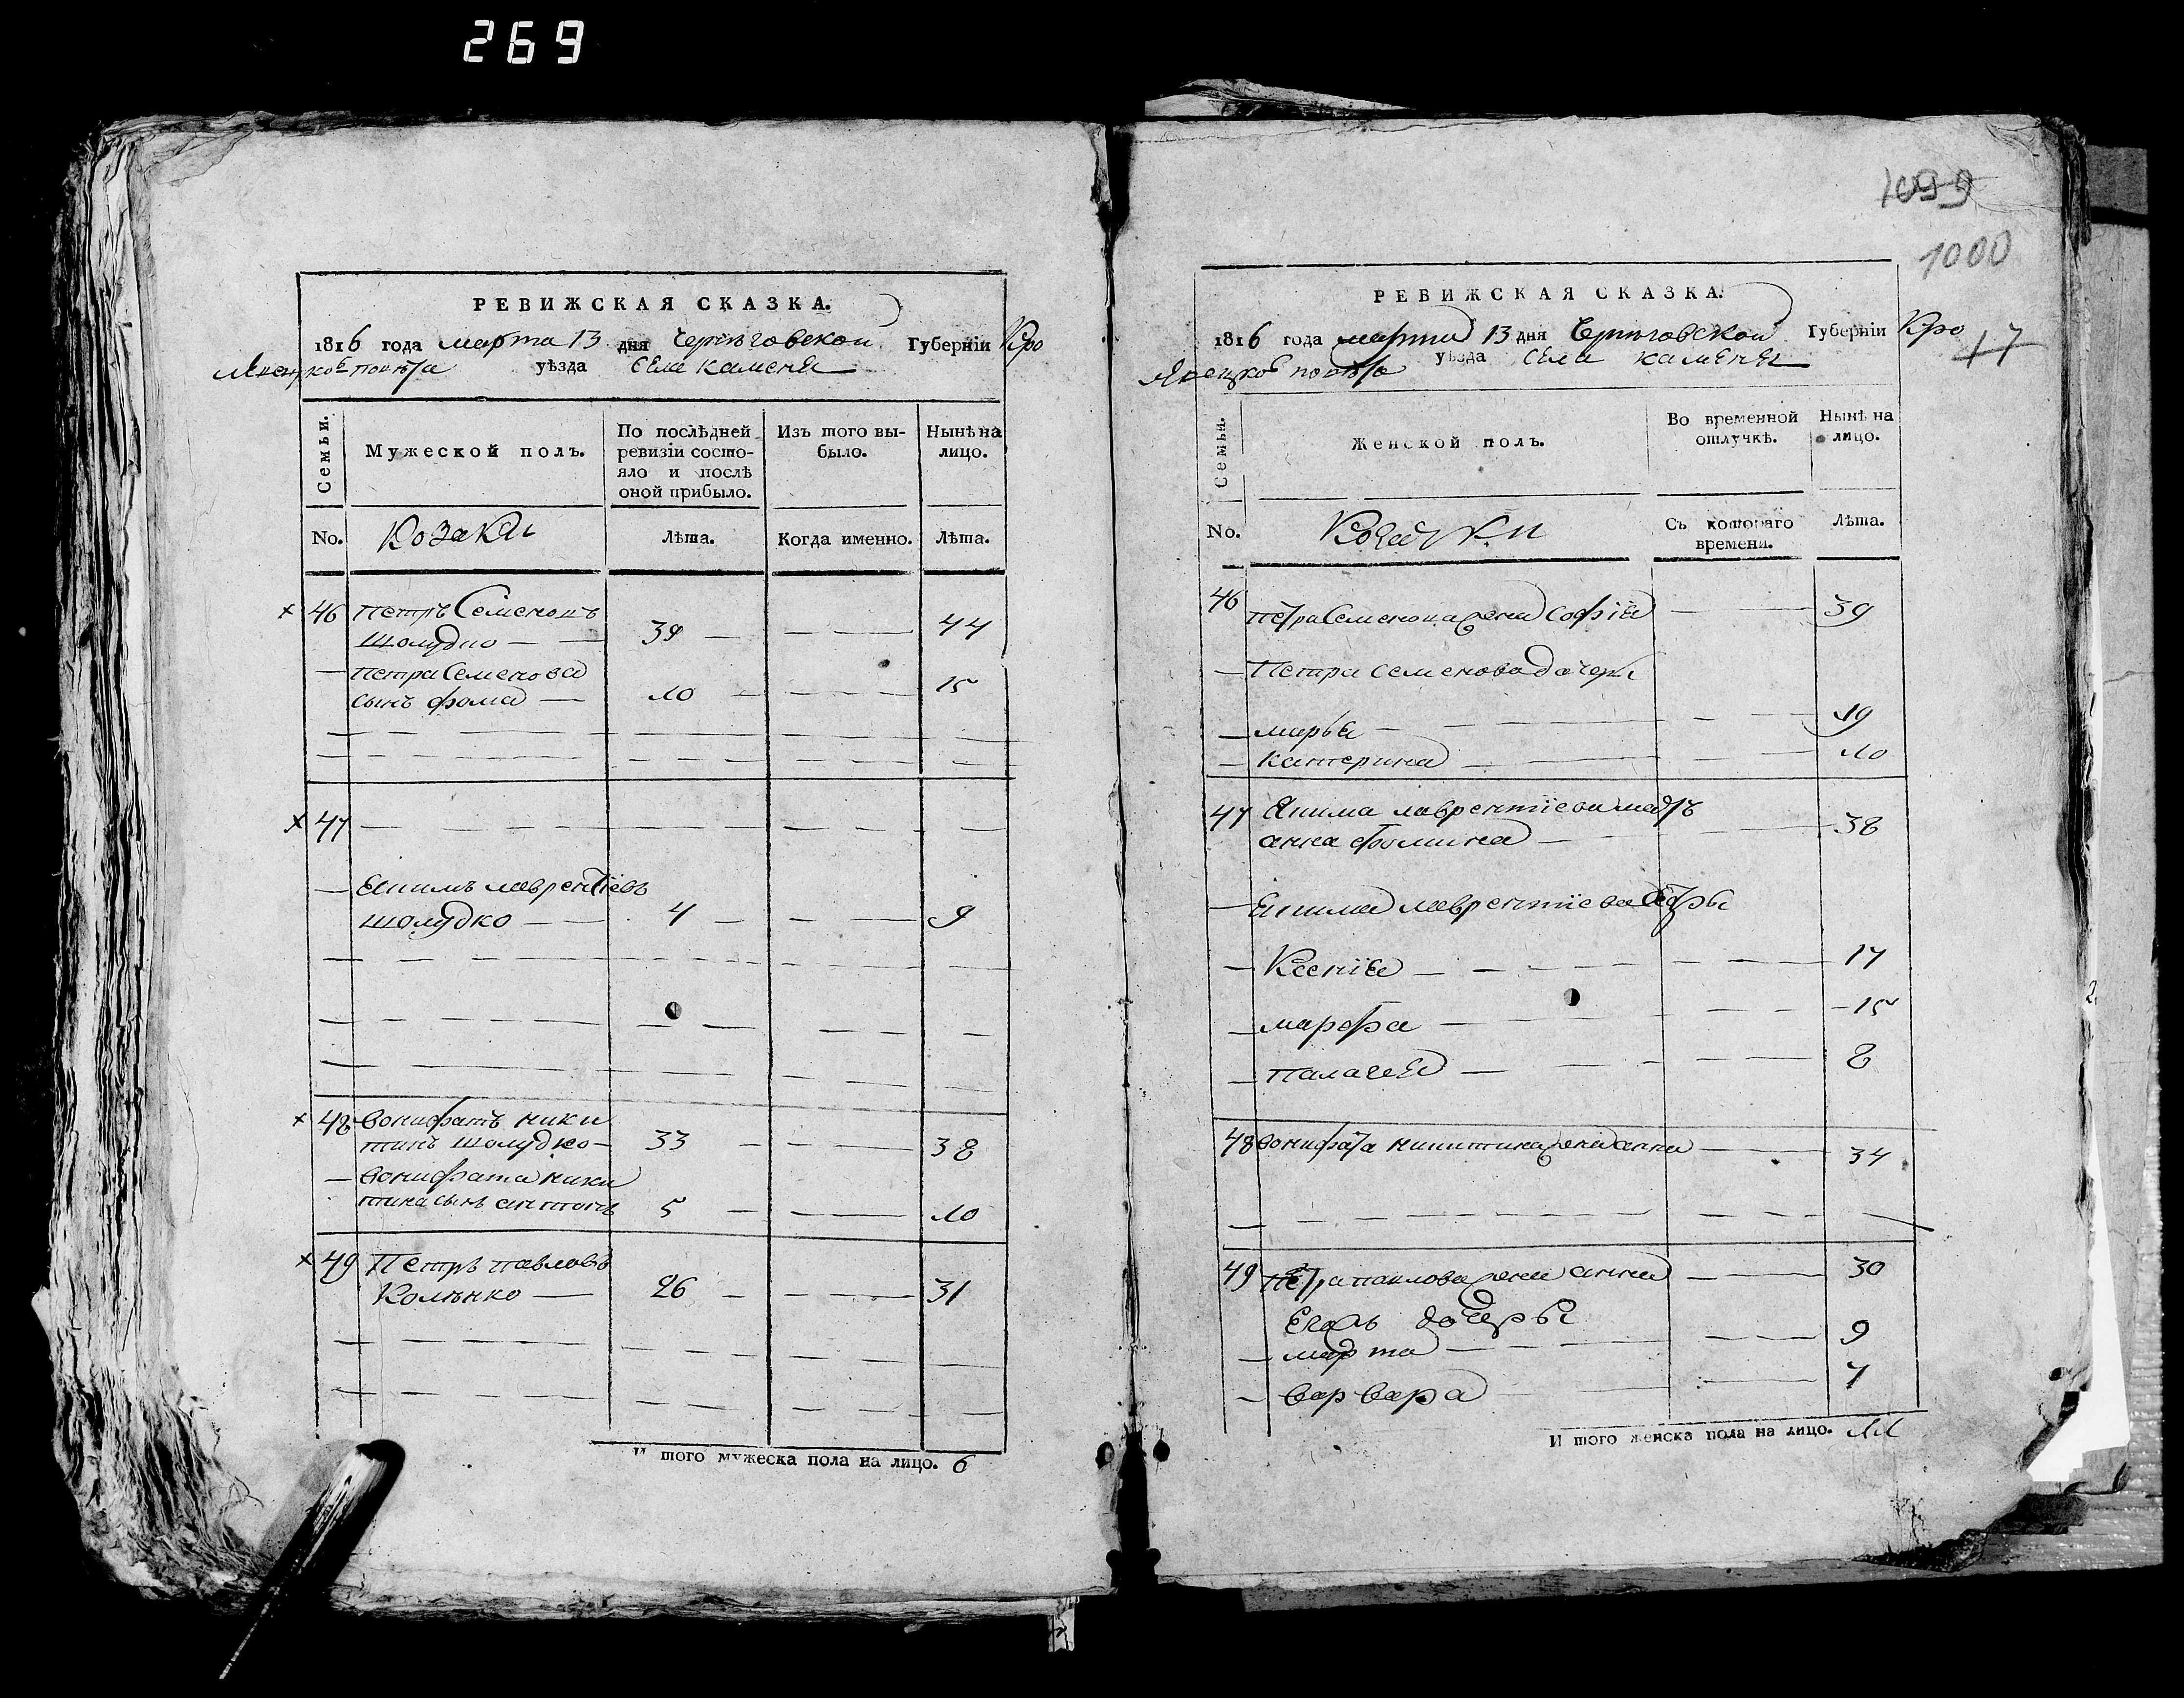 269
РЕВИЖСКАЯ СКАЗКА.
1816 года марта 13 дня Черъговской Губерніи Кро
левецког повѣта уѣзда села каменя
Семьи.
Мужеской полъ.
По послѣдней ревизіи состояло и послѣ оной прибыло.
Изъ того выбыло.
Нынѣ на лицо.
No.
Козаки
Лѣта.
Когда именно.
Лѣта.
46 петръ Семеновъ
шолудко 39 44
петра Семенова
сынъ фома 10 15
47
Екимъ лаврентіевъ
шолудко 4 9
48 вонифатъ ники
тинъ шолудко 33 38
вонифата ники
тина сынъ антонъ 5 10
49 Петръ павловъ
26 31
И того мужеска пола на лицо. 6
1099
1000
РЕВИЖСКАЯ СКАЗКА.
1816 года марта 13 дня Черъговской Губерніи Кро
левецког повѣта уѣзда села каменя
47
Семьи.
Женской полъ.
Во временной отлучкѣ.
Нынѣ на лицо.
No.
Козачки
Съ котораго времени.
Лѣта.
46 петра Семенова жена Софія 39
Петра семенова дочери
марья 19
катерина 10
47 Екима лаврентіева матъ
анна фомина 38
Екима лаврентіева сестры
Ксенія 17
марфа 15
палагея 8
48 вонифата никитина жена анна 34
49 петра павлова жена анна 30
Его дочеры
марта 9
варвара 7
И того женска пола на лицо. 11